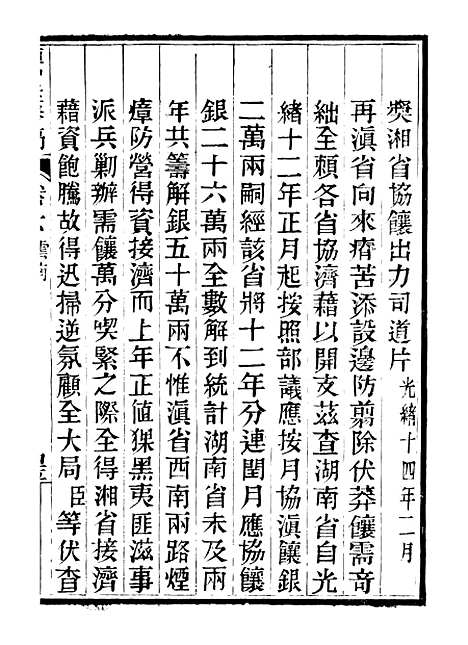 奬湘省協饟出力司道片 光緒十四年二月
再滇省向來瘠苦添設邊防翦除伏莽饟需奇
絀全賴各省協濟藉以開支茲查湖南省自光
緒十二年正月起按照部議應按月協滇饟銀
二萬兩嗣經該省將十二年分連閏月應協饟
銀二十六萬兩全數解到統計湖南省未及兩
年共籌解銀五十萬兩不惟滇省西南兩路煙
瘴防營得資接濟而上年正值猓黑夷匪滋事
派兵剿辦需饟萬分喫緊之際全得湘省接濟
藉資飽騰故得迅掃逆氛顧全大局臣等伏查